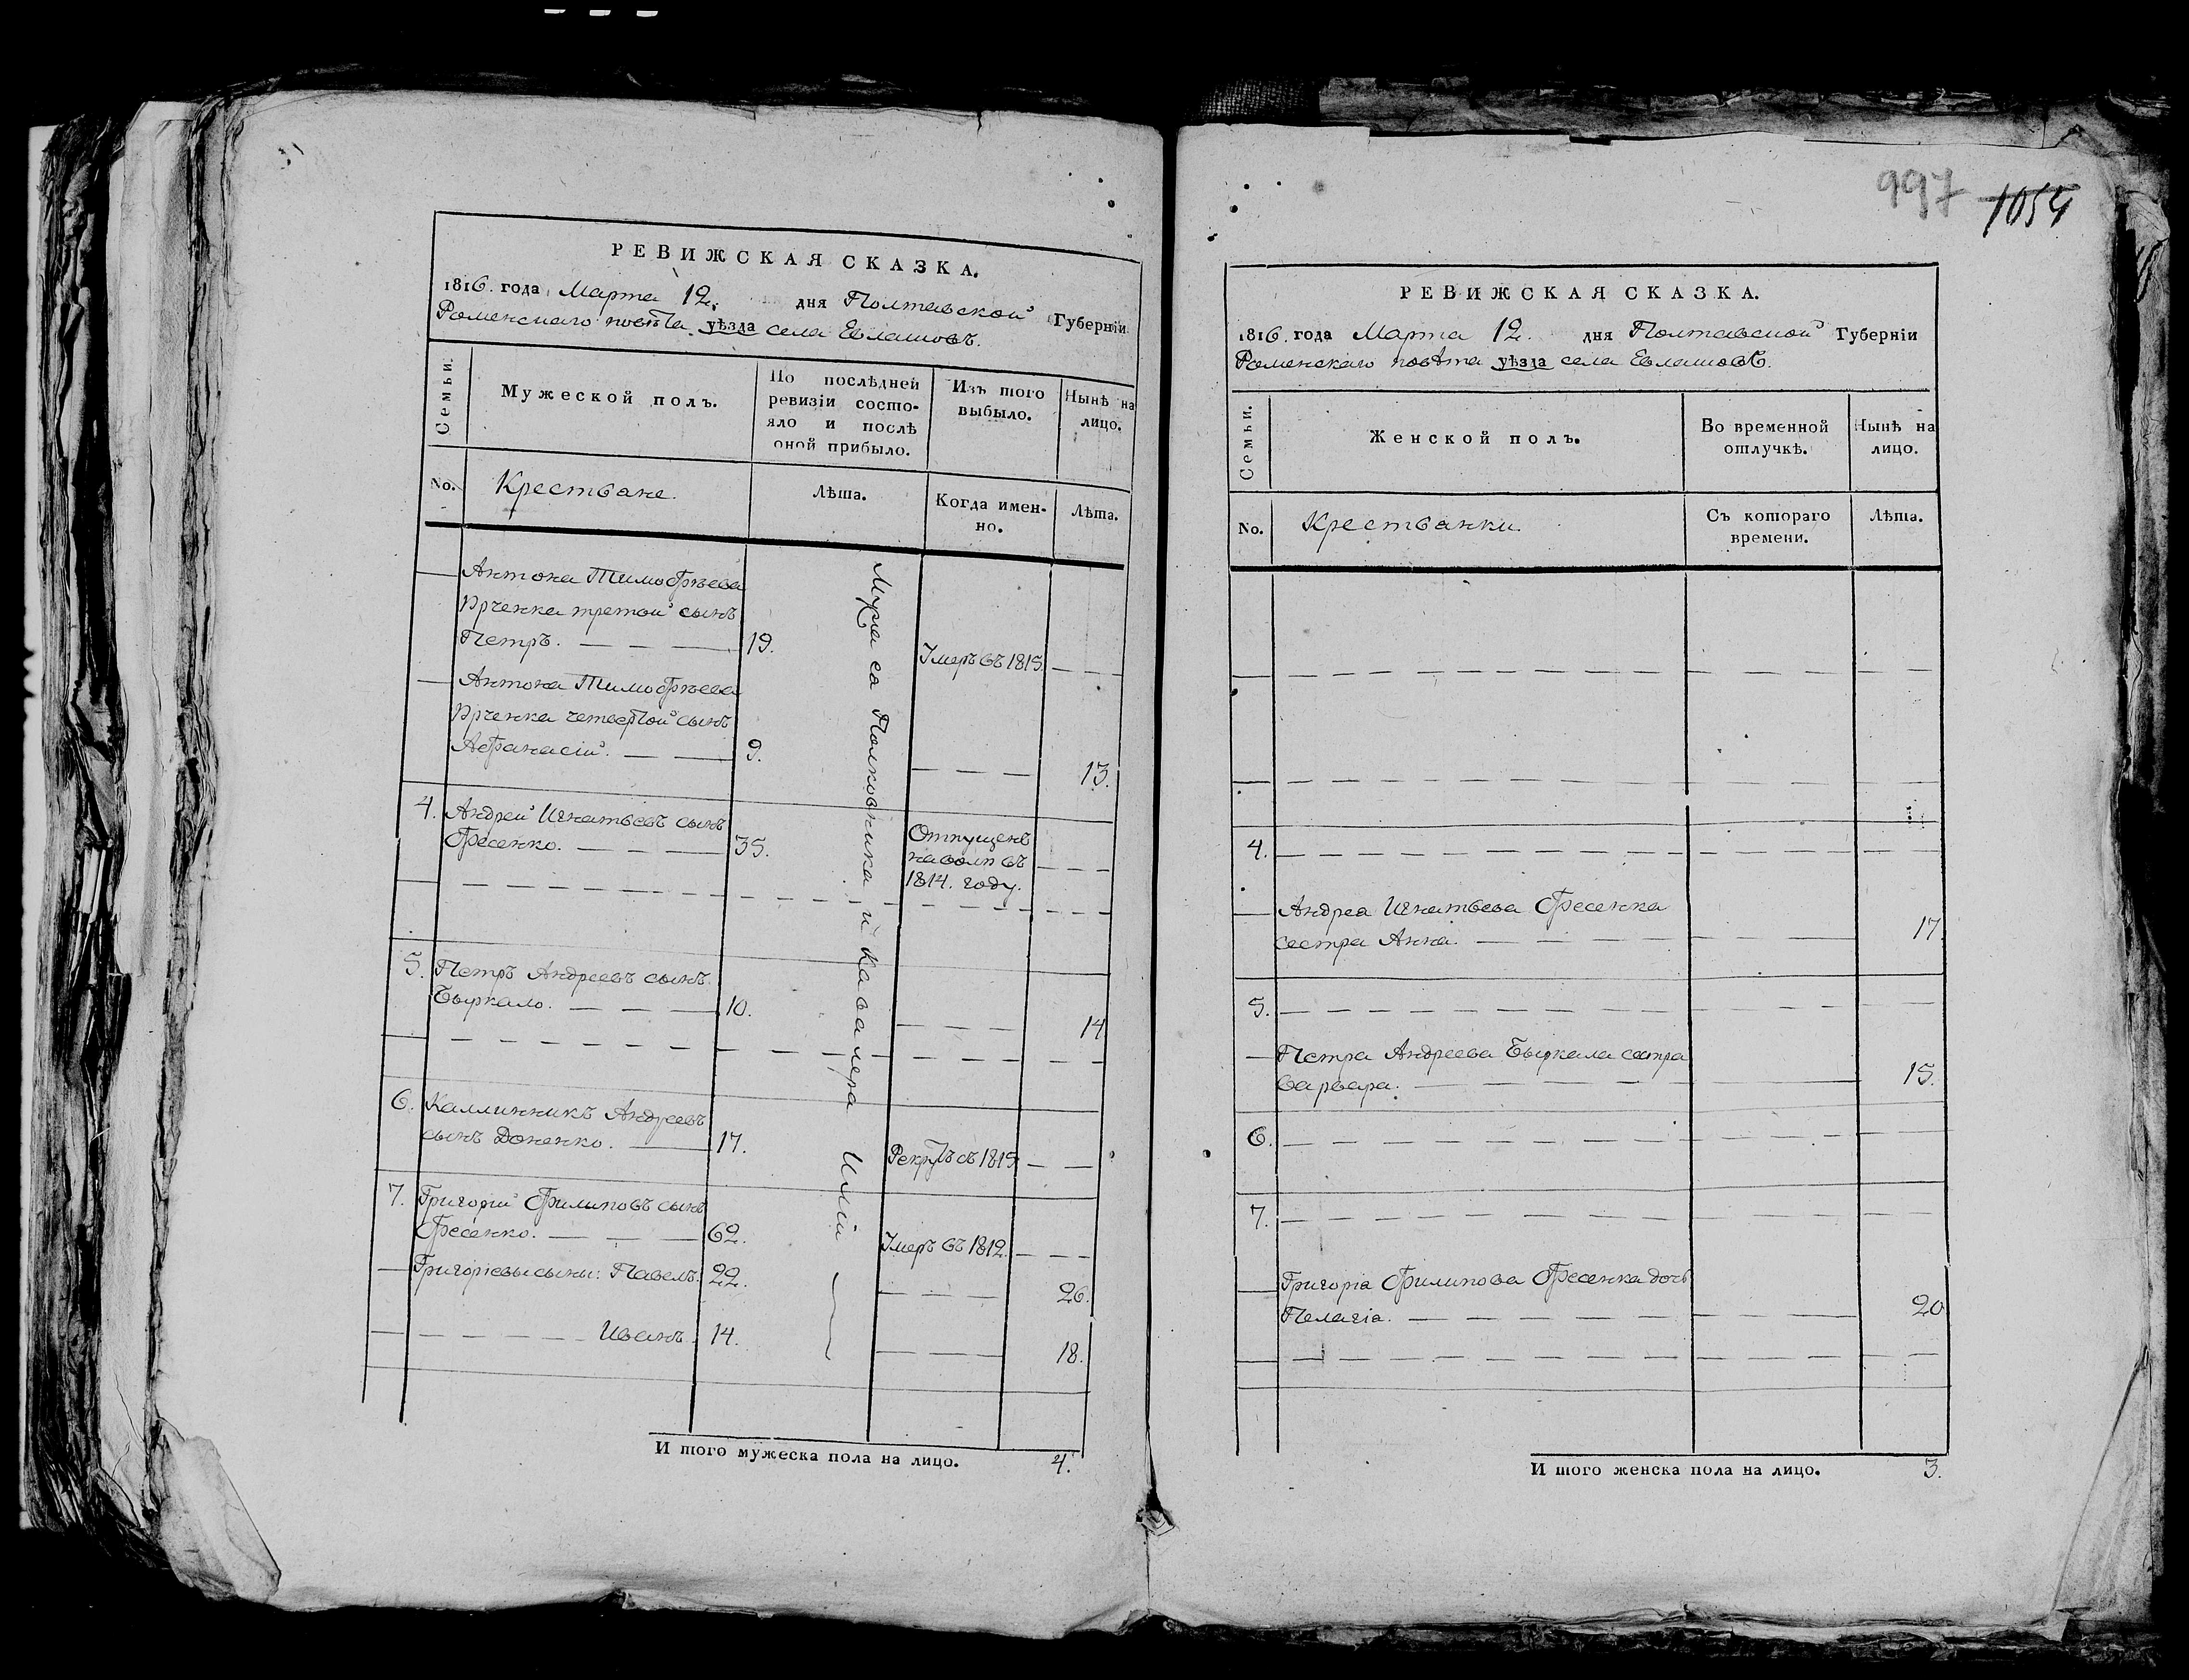 РЕВИЖСКАЯ СКАЗКА.
1816. года Марта 12. дня Полтавской Губерніи
Роменскаго повѣта уѣзда села Евлашовъ.
Семьи.
Мужеской полъ.
По послѣдней
ревизіи состо-
яло и послѣ
оной прибыло.
Изъ того
выбыло.
Нынѣ на
лицо.
No.
Крестьяне.
Лѣта.
Когда имен-
но.
Лѣта.
Антона Тимофѣева
Ирченка третой сынъ
Петръ. 19. Умеръ въ 1815.
Антона Тимофѣева
Ирченка четвертой сынъ
Афанасій. 9. 13.
4. Андрей Игнатьевъ сынъ
Фесенко. 35. Отпущенъ
на волю въ
1814. году.
5. Петръ Андреевъ сынъ
Быркало. 10. 14
6. Каллиникъ Андреевъ
сынъ Доненко. 17. Рекрутъ въ 1815
7. Григорій Филиповъ сынъ
Фесенко. 62. Умеръ въ 1812.
Григоріевы сыны: Павелъ. 22. 26.
Иванъ. 14. 18.
Полковника и Кавалера Иліи
И того мужеска пола на лицо. 4.
997 1054
РЕВИЖСКАЯ СКАЗКА.
1816. года Марта 12. дня Полтавской Губерніи
Роменскаго повѣта уѣзда села Евлашовъ.
Семьи.
Женской полъ.
Во временной
отлучкѣ.
Нынѣ на
лицо.
No.
Крестьянки.
Съ котораго
времени.
Лѣта.
4.
Андреа Игнатьева Фесенка
сестра Анна. 17
5.
Петра Андреева Быркала сестра
Варвара. 15.
6.
7.
Григоріа Филипова Фесенка дочь
Пелагіа. 20
И того женска пола на лицо. 3.